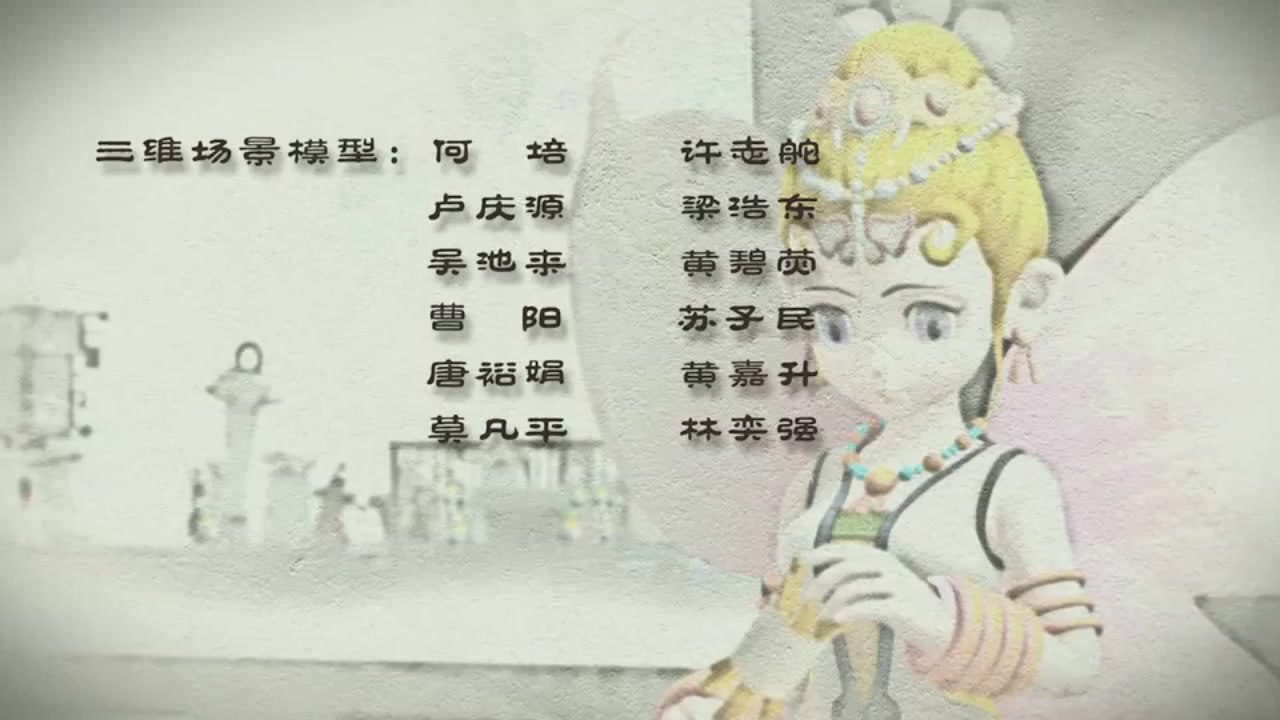 三维场景模型：何 培 许志舵
卢庆源 梁浩东
吴池来 黄碧荧
曹 阳 苏子民
唐裕娟 黄嘉升
莫凡平 林奕强